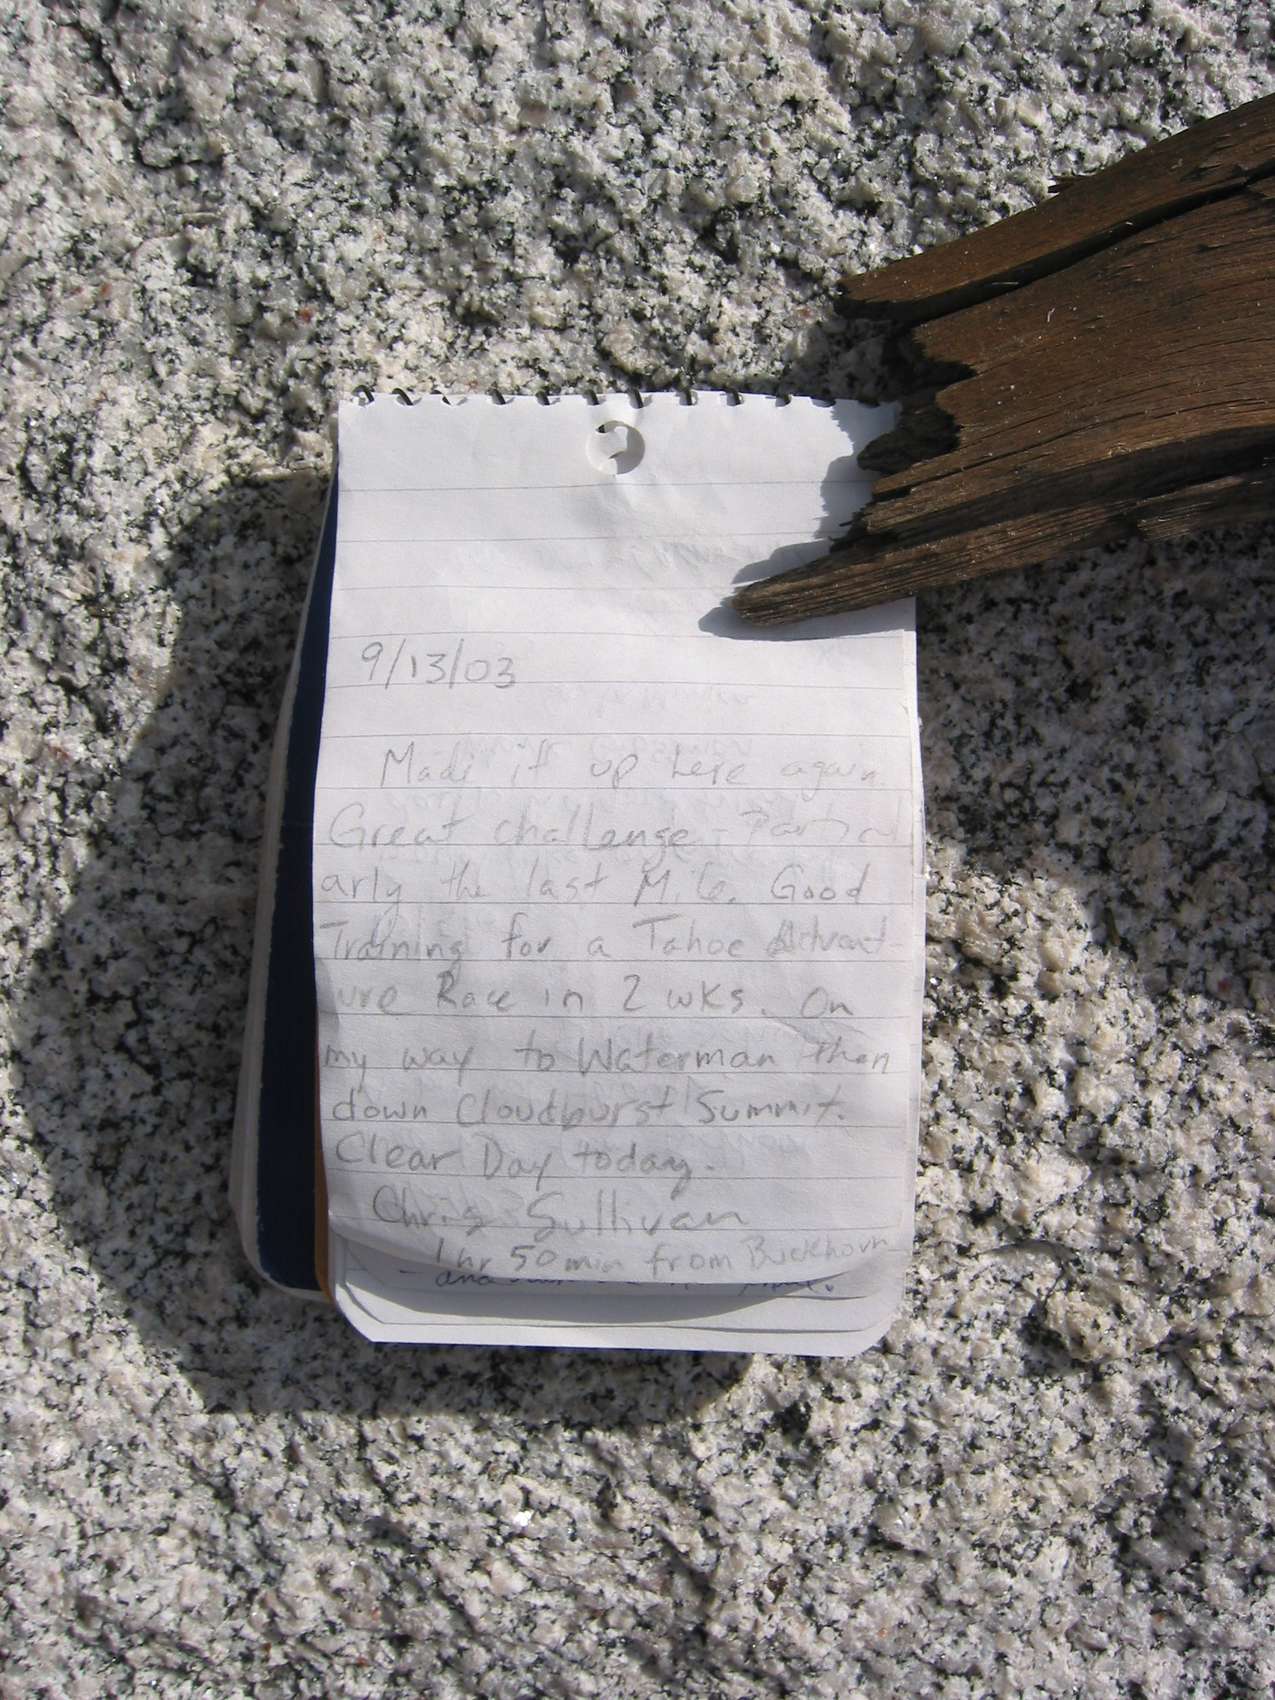 9/13/03
Made it up here again.
Great challenge. Particul
arly the last Mile. Good
Training for a Tahoe Advent-
ure Race in 2 wks. On
my way to Waterman then
down Cloudburst Summit.
Clear Day today.
Chris Sullivan
1 hr 50 min from Buckhorn